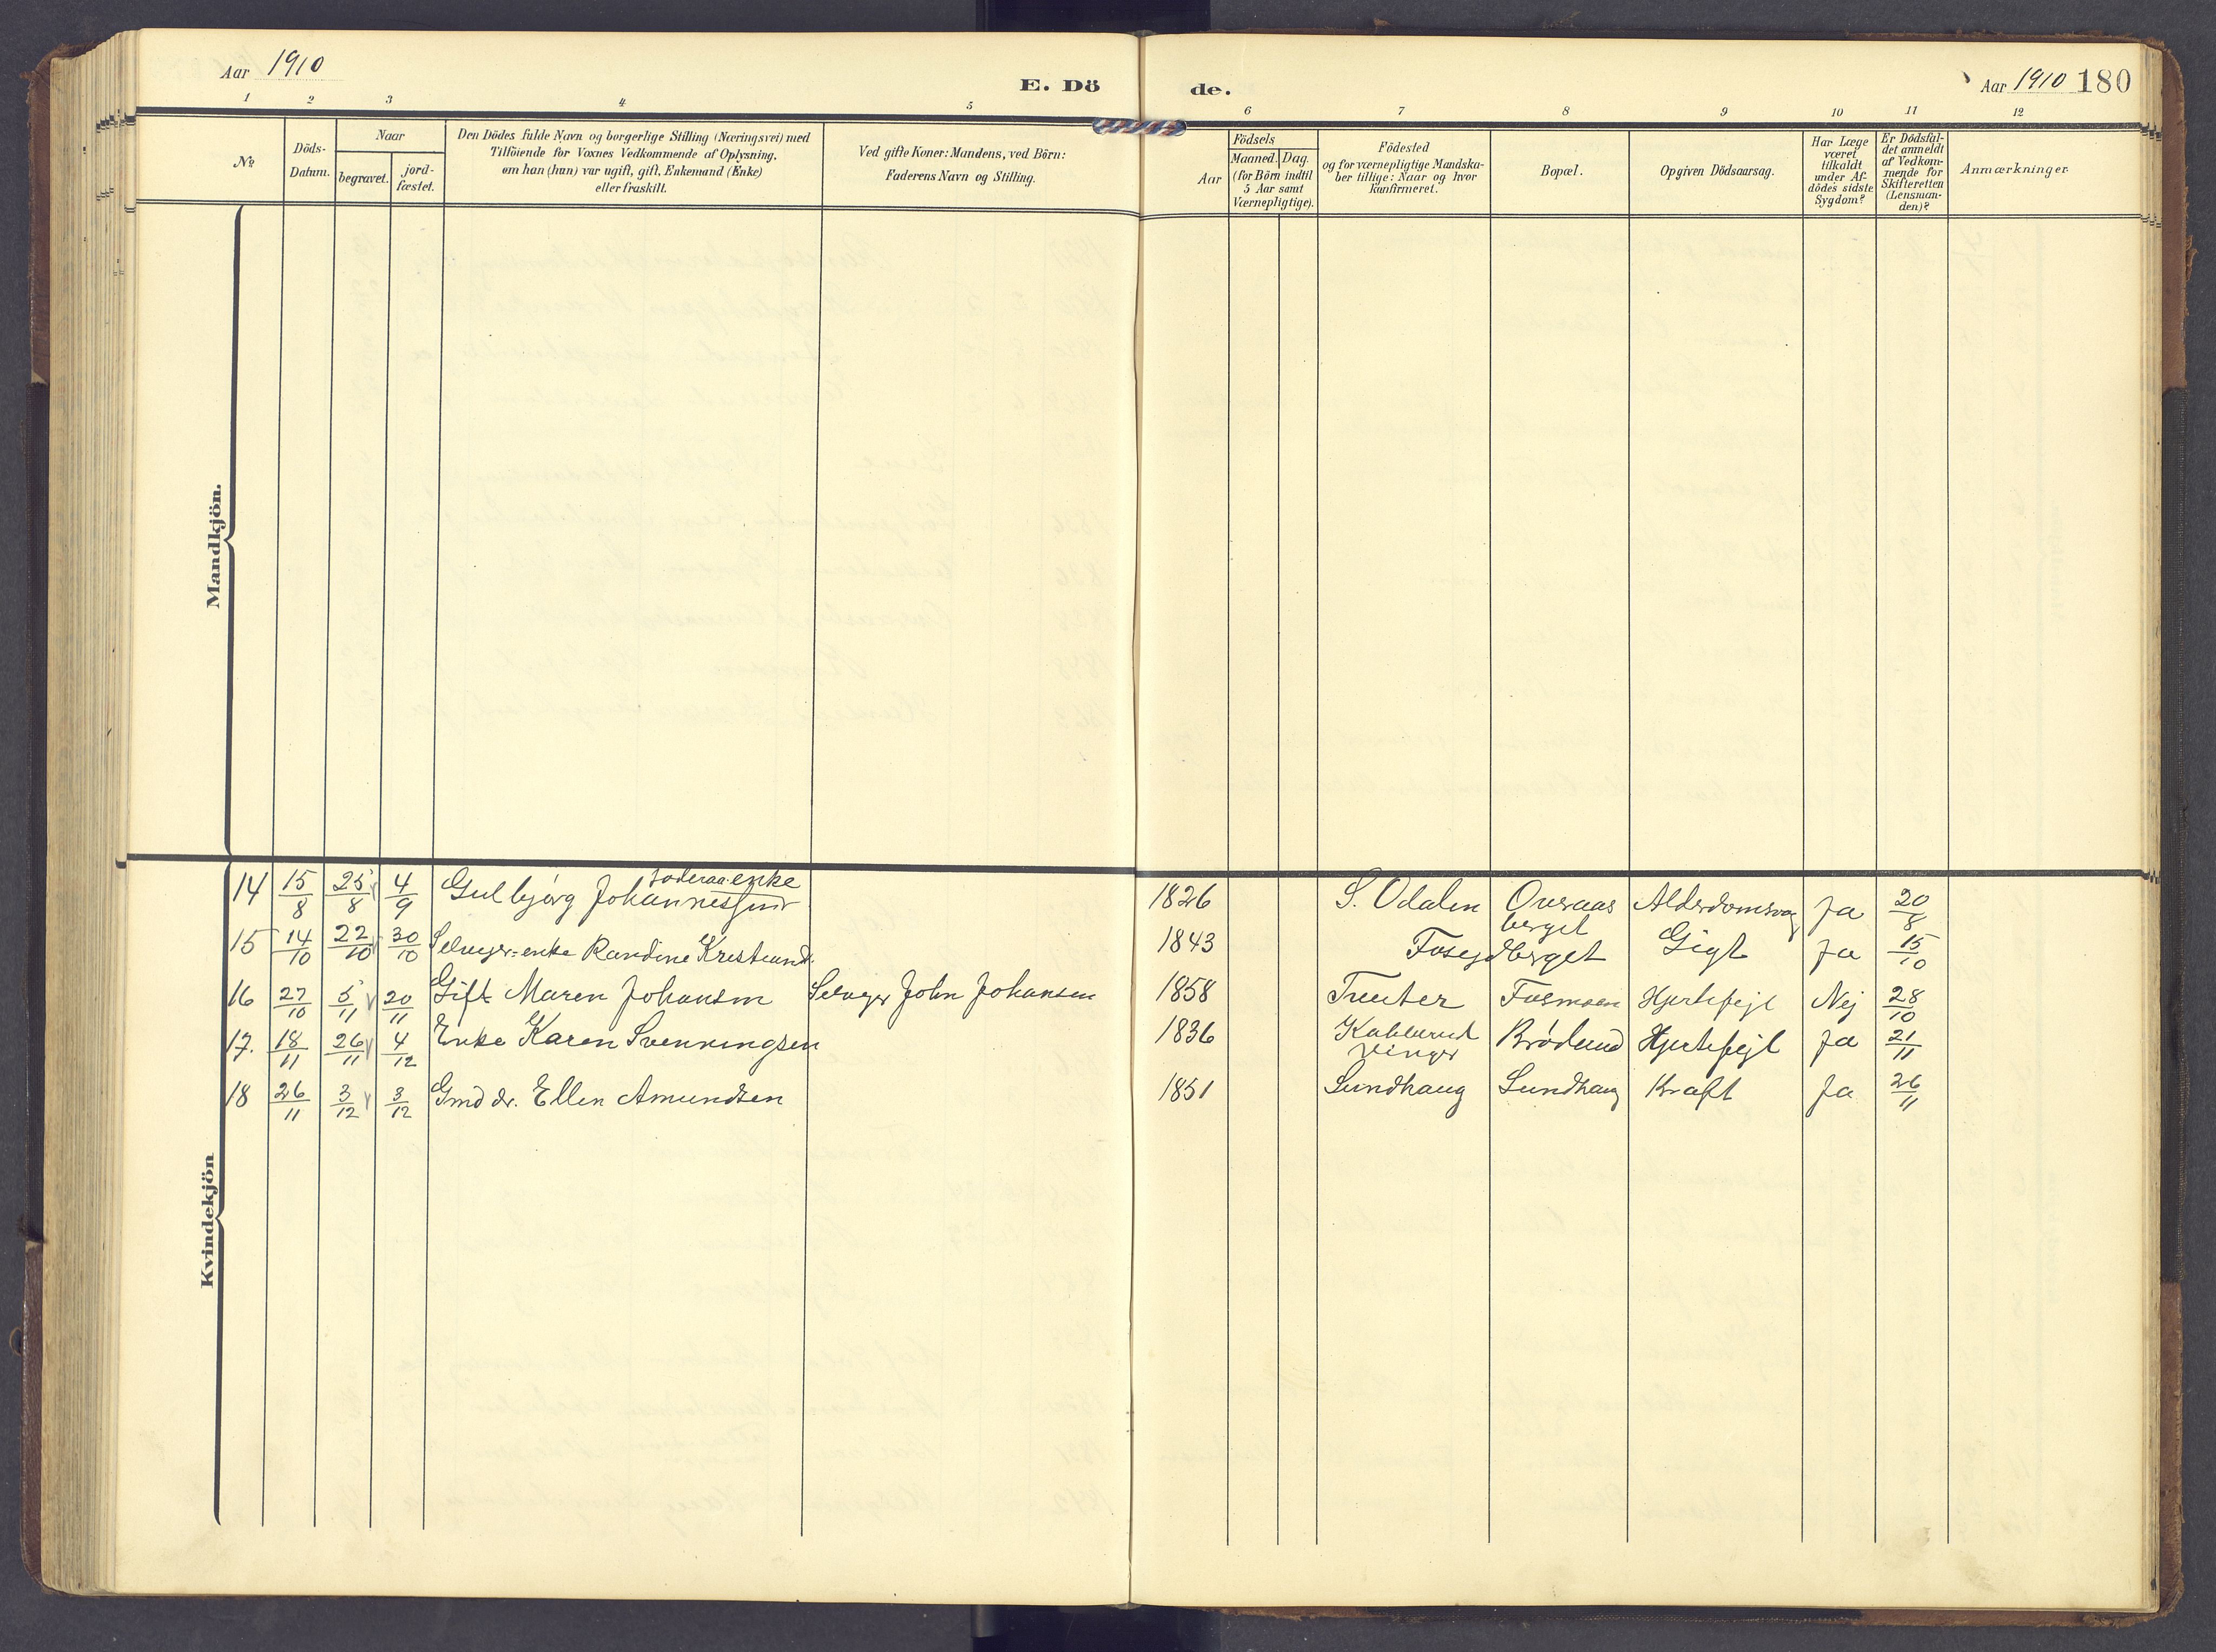 Aar 1910
E. Dö
de.
Aar 1910 180
1 2 3 4 5 6 7 8 9 10 11 12
№
Döds-
Datum.
Naar
begravet.
jord-
fæstet.
Den Dödes fulde Navn og borgerlige Stilling (Næringsvei) med
Tilföiende for Voxnes Vedkommende af Oplysning,
om han (hun) var ugift, gift, Enkemand (Enke)
eller fraskilt.
Ved gifte Koner: Mandens, ved Börn:
Faderens Navn og Stilling.
Födsels
Aar
Maaned.
Dag.
(for Börn indtil
5 Aar samt
Værnepligtige).
Födested
og for værnepligtige Mandska-
ber tillige: Naar og hvor
konfirmeret.
Bopæl.
Opgiven Dödsaarsag.
Har Læge
været
tilkaldt
under Af-
dödes sidste
Sygdom?
Er Dödsfal-
det anmeldt
af Vedkom-
mende for
Skifteretten
(Lensman-
den)?
Anmærkninger
Mandkjön.
Kvindekjön
14 15/8 25/8 4/9 Gulbjørg Johannes enke 1826 S. Odalen Overaas
berget Ja 20/8
15 14/10 22/10 30/10 Selveyer-enke Randine Kristiand. 1843 Gigt Ja 15/10
16 27/10 5/11 20/11 Gift Maren Johansen Selveyer John Johansen 1858 Fosmoen Hjertefejl Nej 28/10
17. 18/11 26/11 4/12 Enke Karen Svenningsen 1836 Vinger Hjertefejl Ja 21/11
18 26/11 3/12 3/12 Gmd dr. Ellen Amundsen 1851 Sundhaug Sundhaug Kræft Ja 26/11